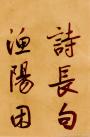 詩長句
漁陽田